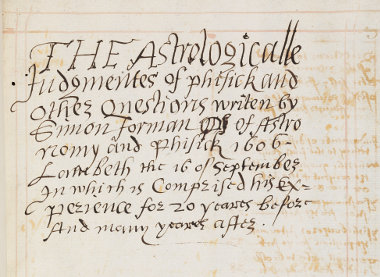 THE Astrologicalle
Judgmentes of phisick and
other Questions writen by
Simon Forman D of Astro
nomy and Phisick 1606
Lambeth the 16 of September
In which is Comprised his Ex-
perience for 20 yeares before
And many yeares after.